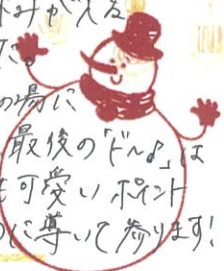 みがえる
た。
の場に
最後の「ドル♪」は
も可愛いポイント
のに導いて参ります!